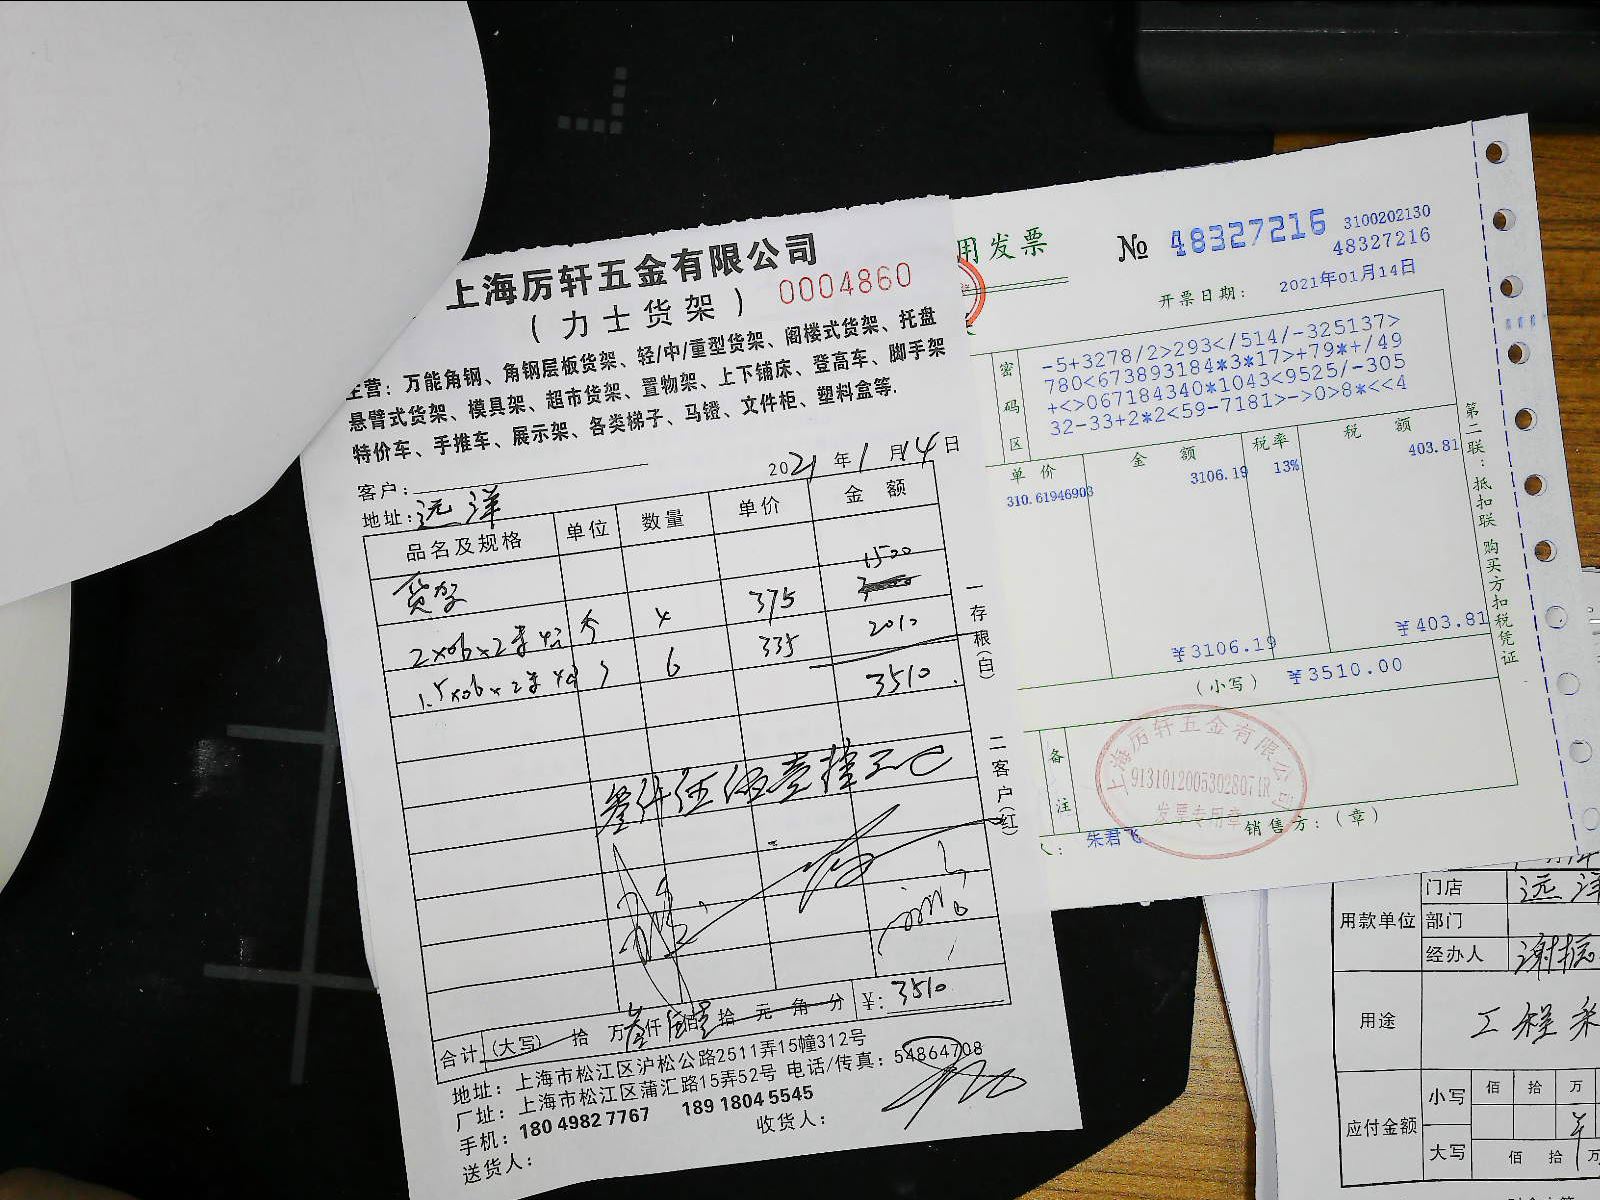 上海厉轩五金有限公司
(力士货架)
0004860
主营：万能角钢、角钢层板货架、轻/中/重型货架、阁楼式货架、托盘
悬臂式货架、模具架、超市货架、置物架、上下铺床、登高车、脚手架
特价车、手推车、展示架、各类梯子、马镫、文件柜、塑料盒等.
2021年1月14日
客户：
地址：远洋
品名及规格 单位 数量 单价 金额
货架
1500
4 375
6 335 2010
3510
一存根(白)
二客户(红)
合计 (大写) 拾 万叁仟伍佰壹拾 元 角 分 ¥：3510
地址：上海市松江区沪松公路2511弄15幢312号
厂址：上海市松江区蒲汇路15弄52号 电话/传真：54864708
手机：180 4982 7767 189 1804 5545
送货人： 收货人：
用发票
№ 48327216
3100202130
48327216
开票日期： 2021年01月14日
密码区
-5+3278/2>293</514/-325137>
780<673893184*3*17>+79*+/49
+<>067184340*1043<9525/-305
32-33+2*2<59-7181>->0>8*<<4
单价 金额 税率 税额
310.61946903 3106.19 13% 403.81
¥3106.19 ¥403.81
(小写) ¥3510.00
第二联：抵扣联 购买方扣税凭证
备注
上海厉轩五金有限公司
发票专用章
朱君飞
销售方：(章)
用款单位
门店 远洋
部门
经办人
用途 工程
应付金额
小写 佰 拾 万
大写 佰 拾 万